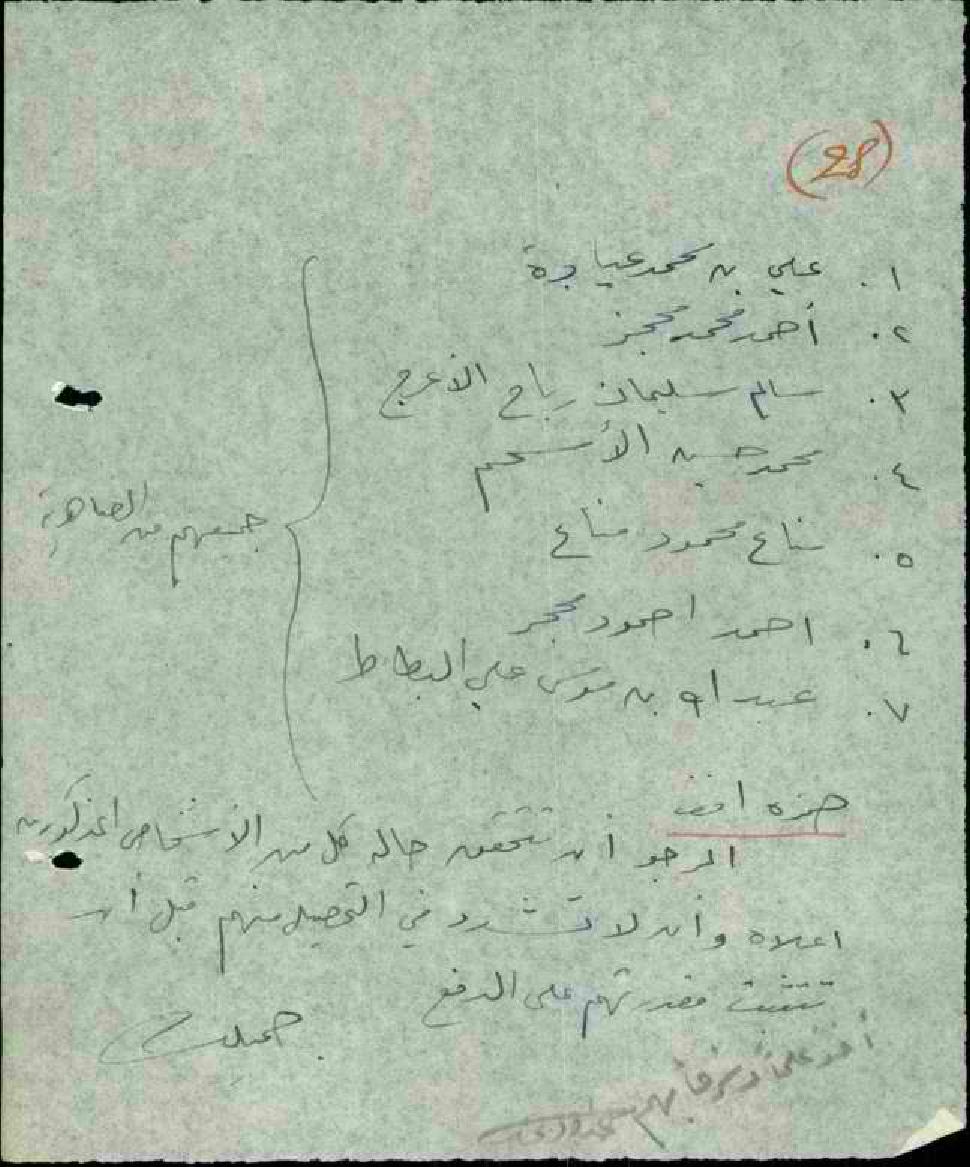 (28)
١. علي بن محمد عيادة
٢. أحمد محمد محجز
٣. سالم سليمان رباح الأعرج
٤. محمد حسين الأسحم
٥. مناع محمود مناع
٦. احمد احمود محجز
٧. عبد الله بن موسى علي البطاط
جميعهم من الضاهرية
حمزه افندي
المرجو أن تتحقق حالة كل من الأشخاص المذكورين
اعلاه وأن لا تشدد في التحصيل منهم قبل أن
تتثبت مقدرتهم على الدفع
جميل
أخذ علماً